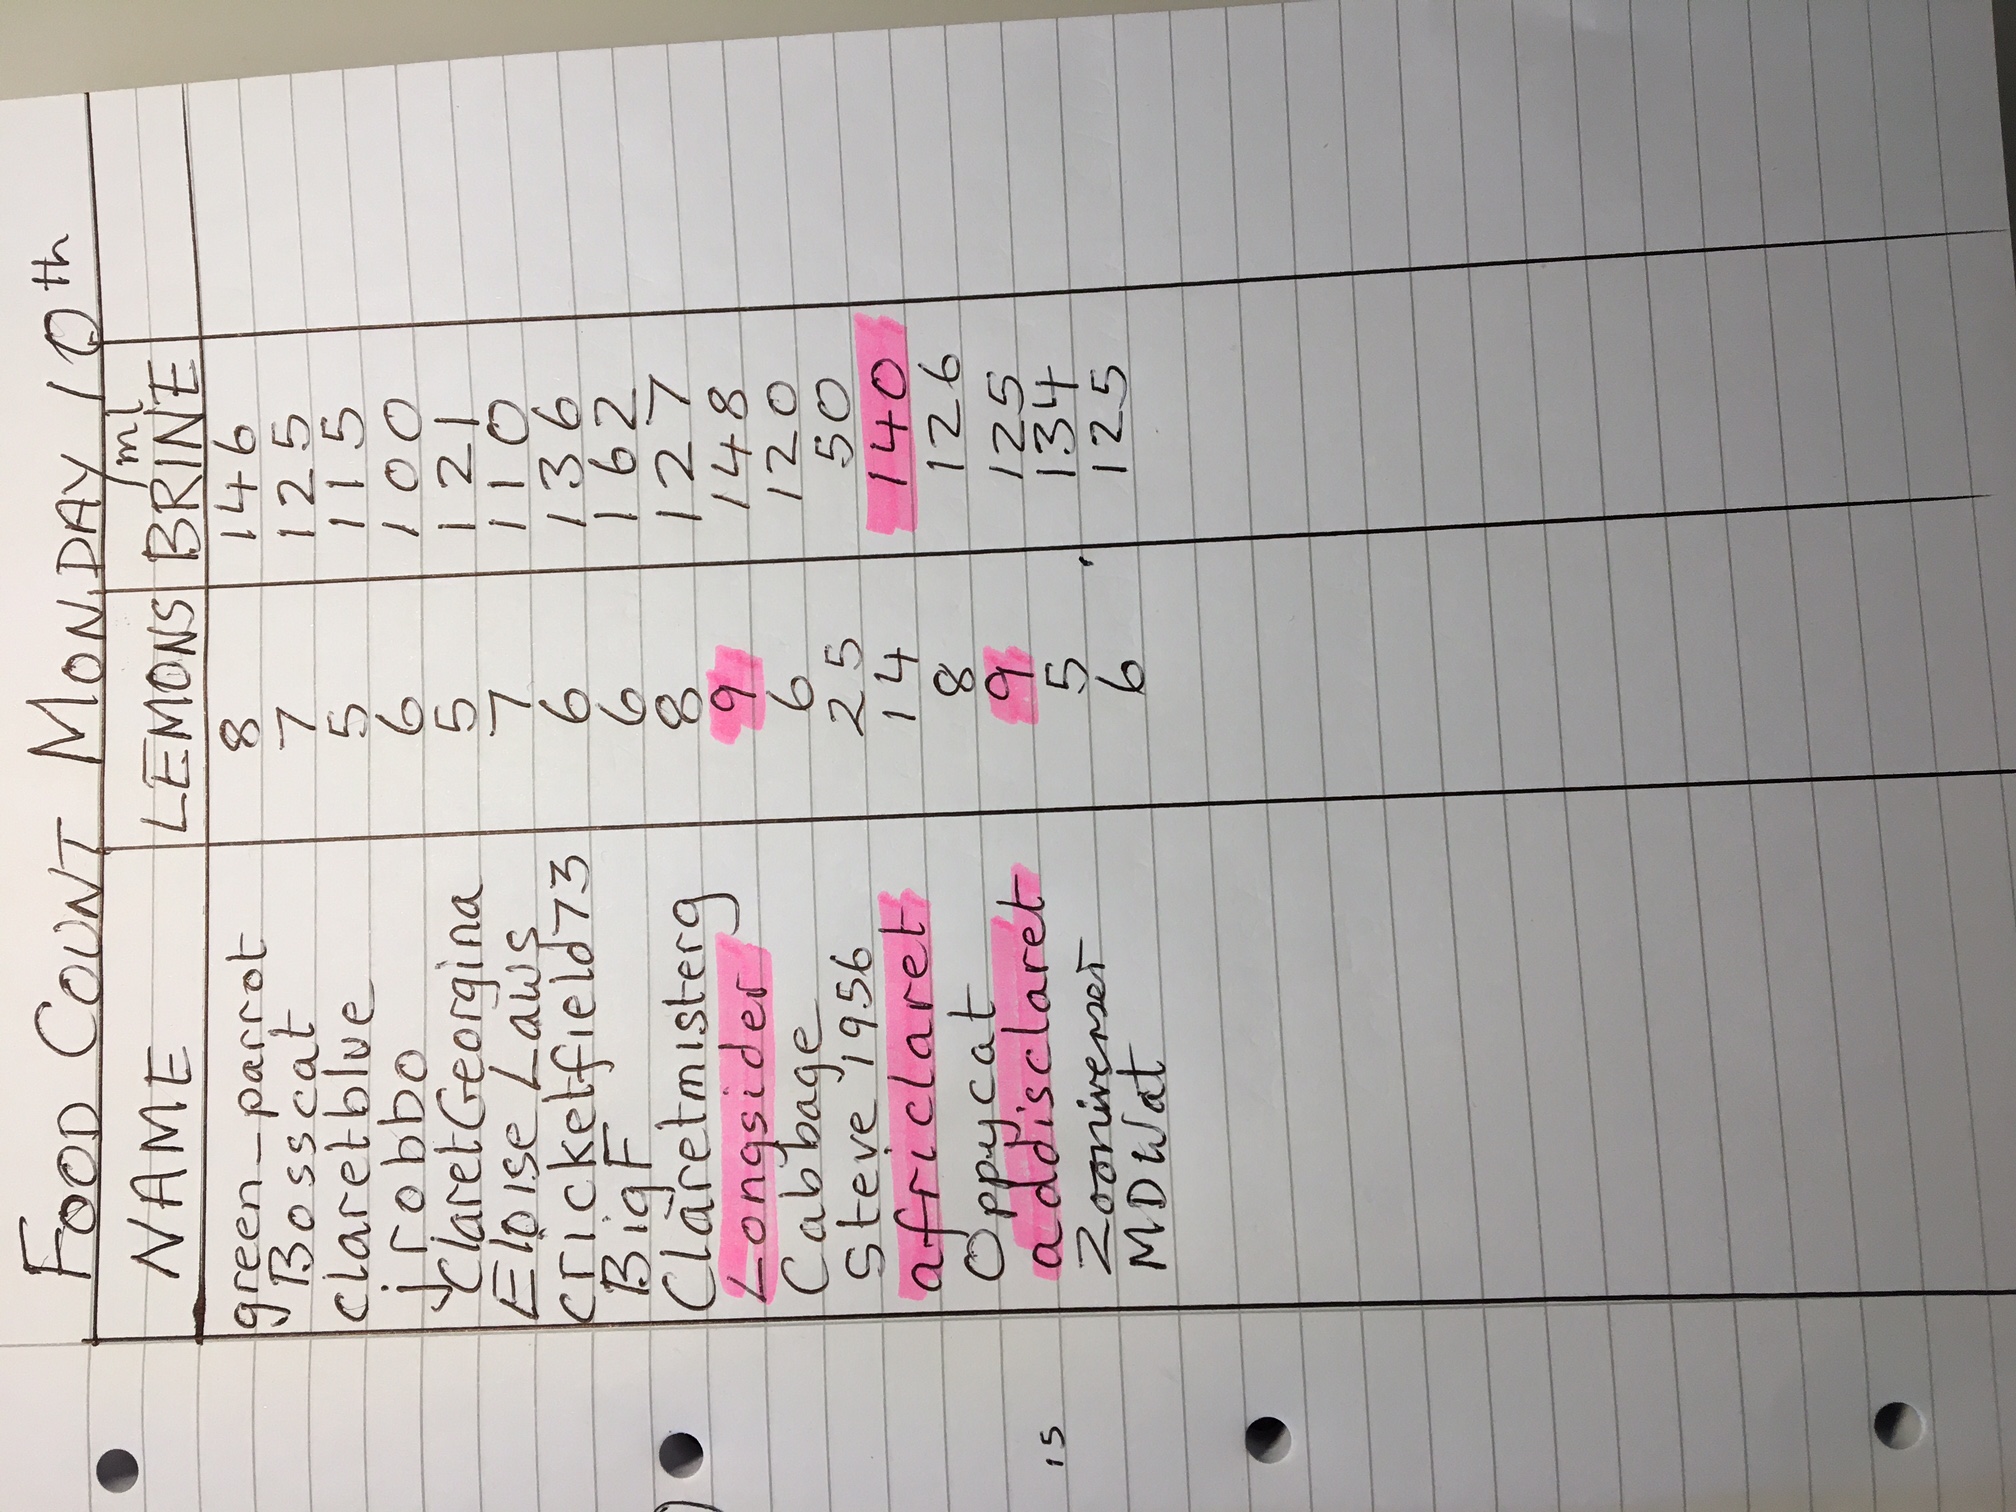 FOOD COUNT MONDAY 10th
NAME LEMONS ml BRINE
green_parrot 8 146
Bosscat 7 125
claretblue 5 115
jrobbo 6 100
ClaretGeorgina 5 121
Eloise Laws 7 110
cricketfield73 6 136
BigF 6 162
Claretmisterg 8 127
Longsider 9 148
Cabbage 6 120
Steve 1956 25 50
africlaret 14 140
Oppycat 8 126
addisclaret 9 125
15 Zooniverser 5 134
MDWat 6 125